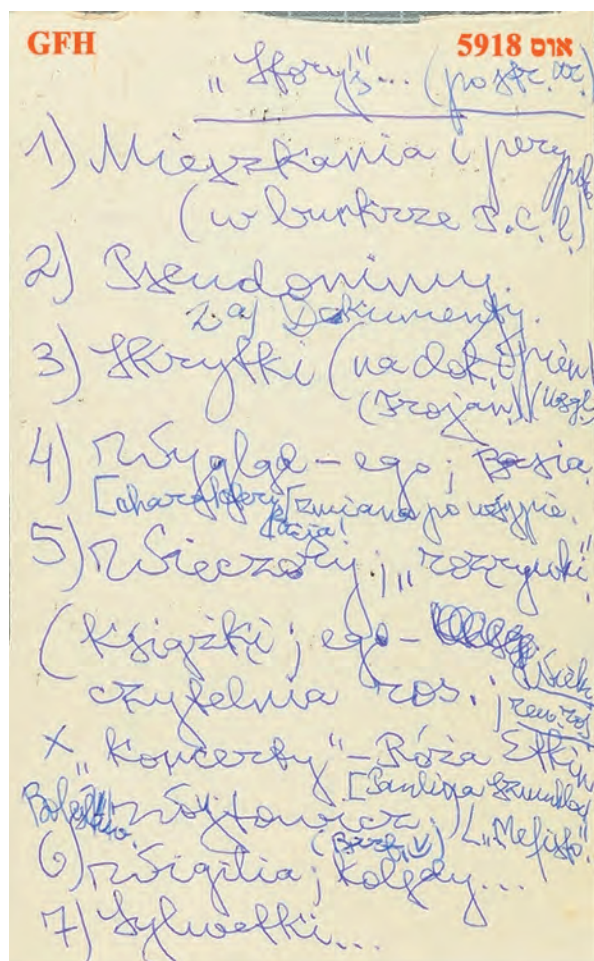 GFH
אוס 5918
"Story's"... (postr. 
1) Mieszkania i pery
(w bunkrze P.C.
2) Pseudonimy.
2a) Dokumenty.
3) Skrytki (na dok i pien
(Trojan)
4) Wygląd – ego; Basia.
[charakteryzacja [zmiana po wsypie.
5) Wieczory; "rozrywki"
(książki; ego –
czytelnia ros.;
x "Koncerty" – Róża Etkin
[Paulina
Bolesław Wojtowicz) ["Mefisto"
6) Wigilia; kolędy...
7) Sylwetki...